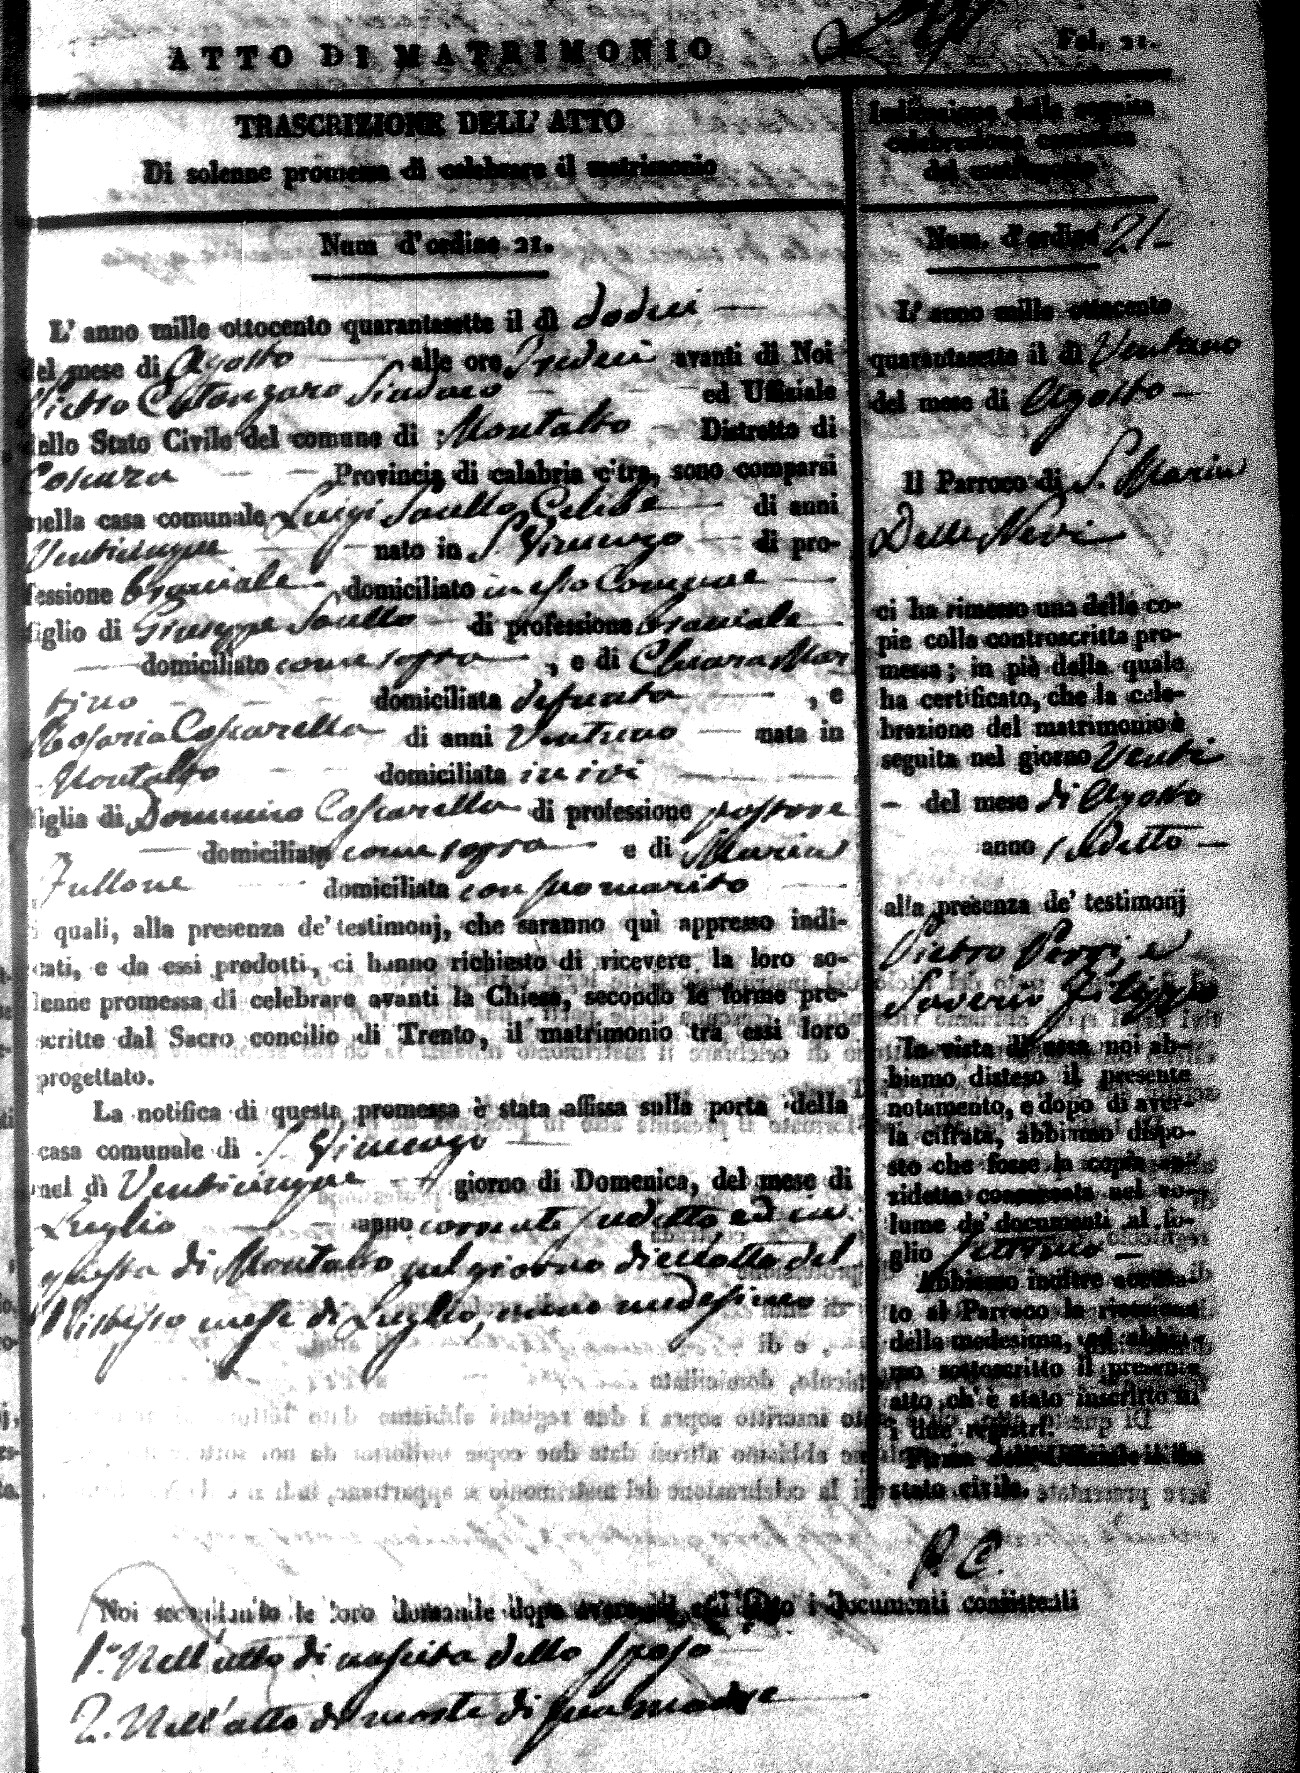 ATTO DI MATRIMONIO
Fol. 21.
TRASCRIZIONE DELL' ATTO
Di solenne promessa di celebrare il matrimonio
Num d'ordine 21.
L' anno mille ottocento quarantasette il dì dodici
del mese di Agosto alle ore Tredici avanti di Noi
Pietro Catanzaro Sindaco ed Uffiziale
dello Stato Civile del comune di Montalto Distretto di
Cosenza Provincia di calabria citra, sono comparsi
nella casa comunale Luigi Celibe di anni
Venticinque nato in S. Vincenzo di pro-
fessione braciale domiciliato in esso Comune
figlio di Giuseppe di professione braciale
domiciliato come sopra, e di Chiara Mar
tino domiciliata defunta, e
Rosaria Coscarella di anni Ventuno nata in
Montalto domiciliata in ivi
figlia di Domenico Coscarella di professione pastore
domiciliato come sopra e di Maria
Fullone domiciliata con suo marito
i quali, alla presenza de' testimonj, che saranno quì appresso indi-
cati, e da essi prodotti, ci hanno richiesto di ricevere la loro so-
lenne promessa di celebrare avanti la Chiesa, secondo le forme pre-
scritte dal Sacro concilio di Trento, il matrimonio tra essi loro
progettato.
La notifica di questa promessa è stata affissa sulla porta della
casa comunale di S. Vincenzo
nel dì Venticinque giorno di Domenica, del mese di
Luglio anno corrente sudetto, ed in
questa di Montalto nel giorno dieciotto del
l'istesso mese di Luglio, anno medesimo
Indicazione della seguita
celebrazione canonica
del matrimonio
Num. d'ordine 21
L' anno mille ottocento
quarantasette il dì Ventuno
del mese di Agosto
Il Parroco di S. Maria
Delle Nevi
ci ha rimesso una delle co-
pie colla controscritta pro-
messa; in piè della quale
ha certificato, che la cele-
brazione del matrimonio è
seguita nel giorno Venti
del mese di Agosto
anno sudetto
alla presenza de' testimonj
Pietro Porri, e
Saverio Filippo
In vista di essa noi ab-
biamo disteso il presente
notamento, e dopo di aver-
la cifrata, abbiamo dispo-
sto che fosse la copia an-
zidetta conservata nel vo-
lume de' documenti al fo-
glio
Abbiamo inoltre accusa-
to al Parroco la ricezione
della medesima, ed abbia-
mo sottoscritto il presente
atto, ch' è stato inscritto ai
due registri.
stato civile.
P. C.
Noi secondando le loro domande dopo i documenti consistenti
1.° Nell'atto di nascita dello sposo
2. Nell'atto di morte di sua madre